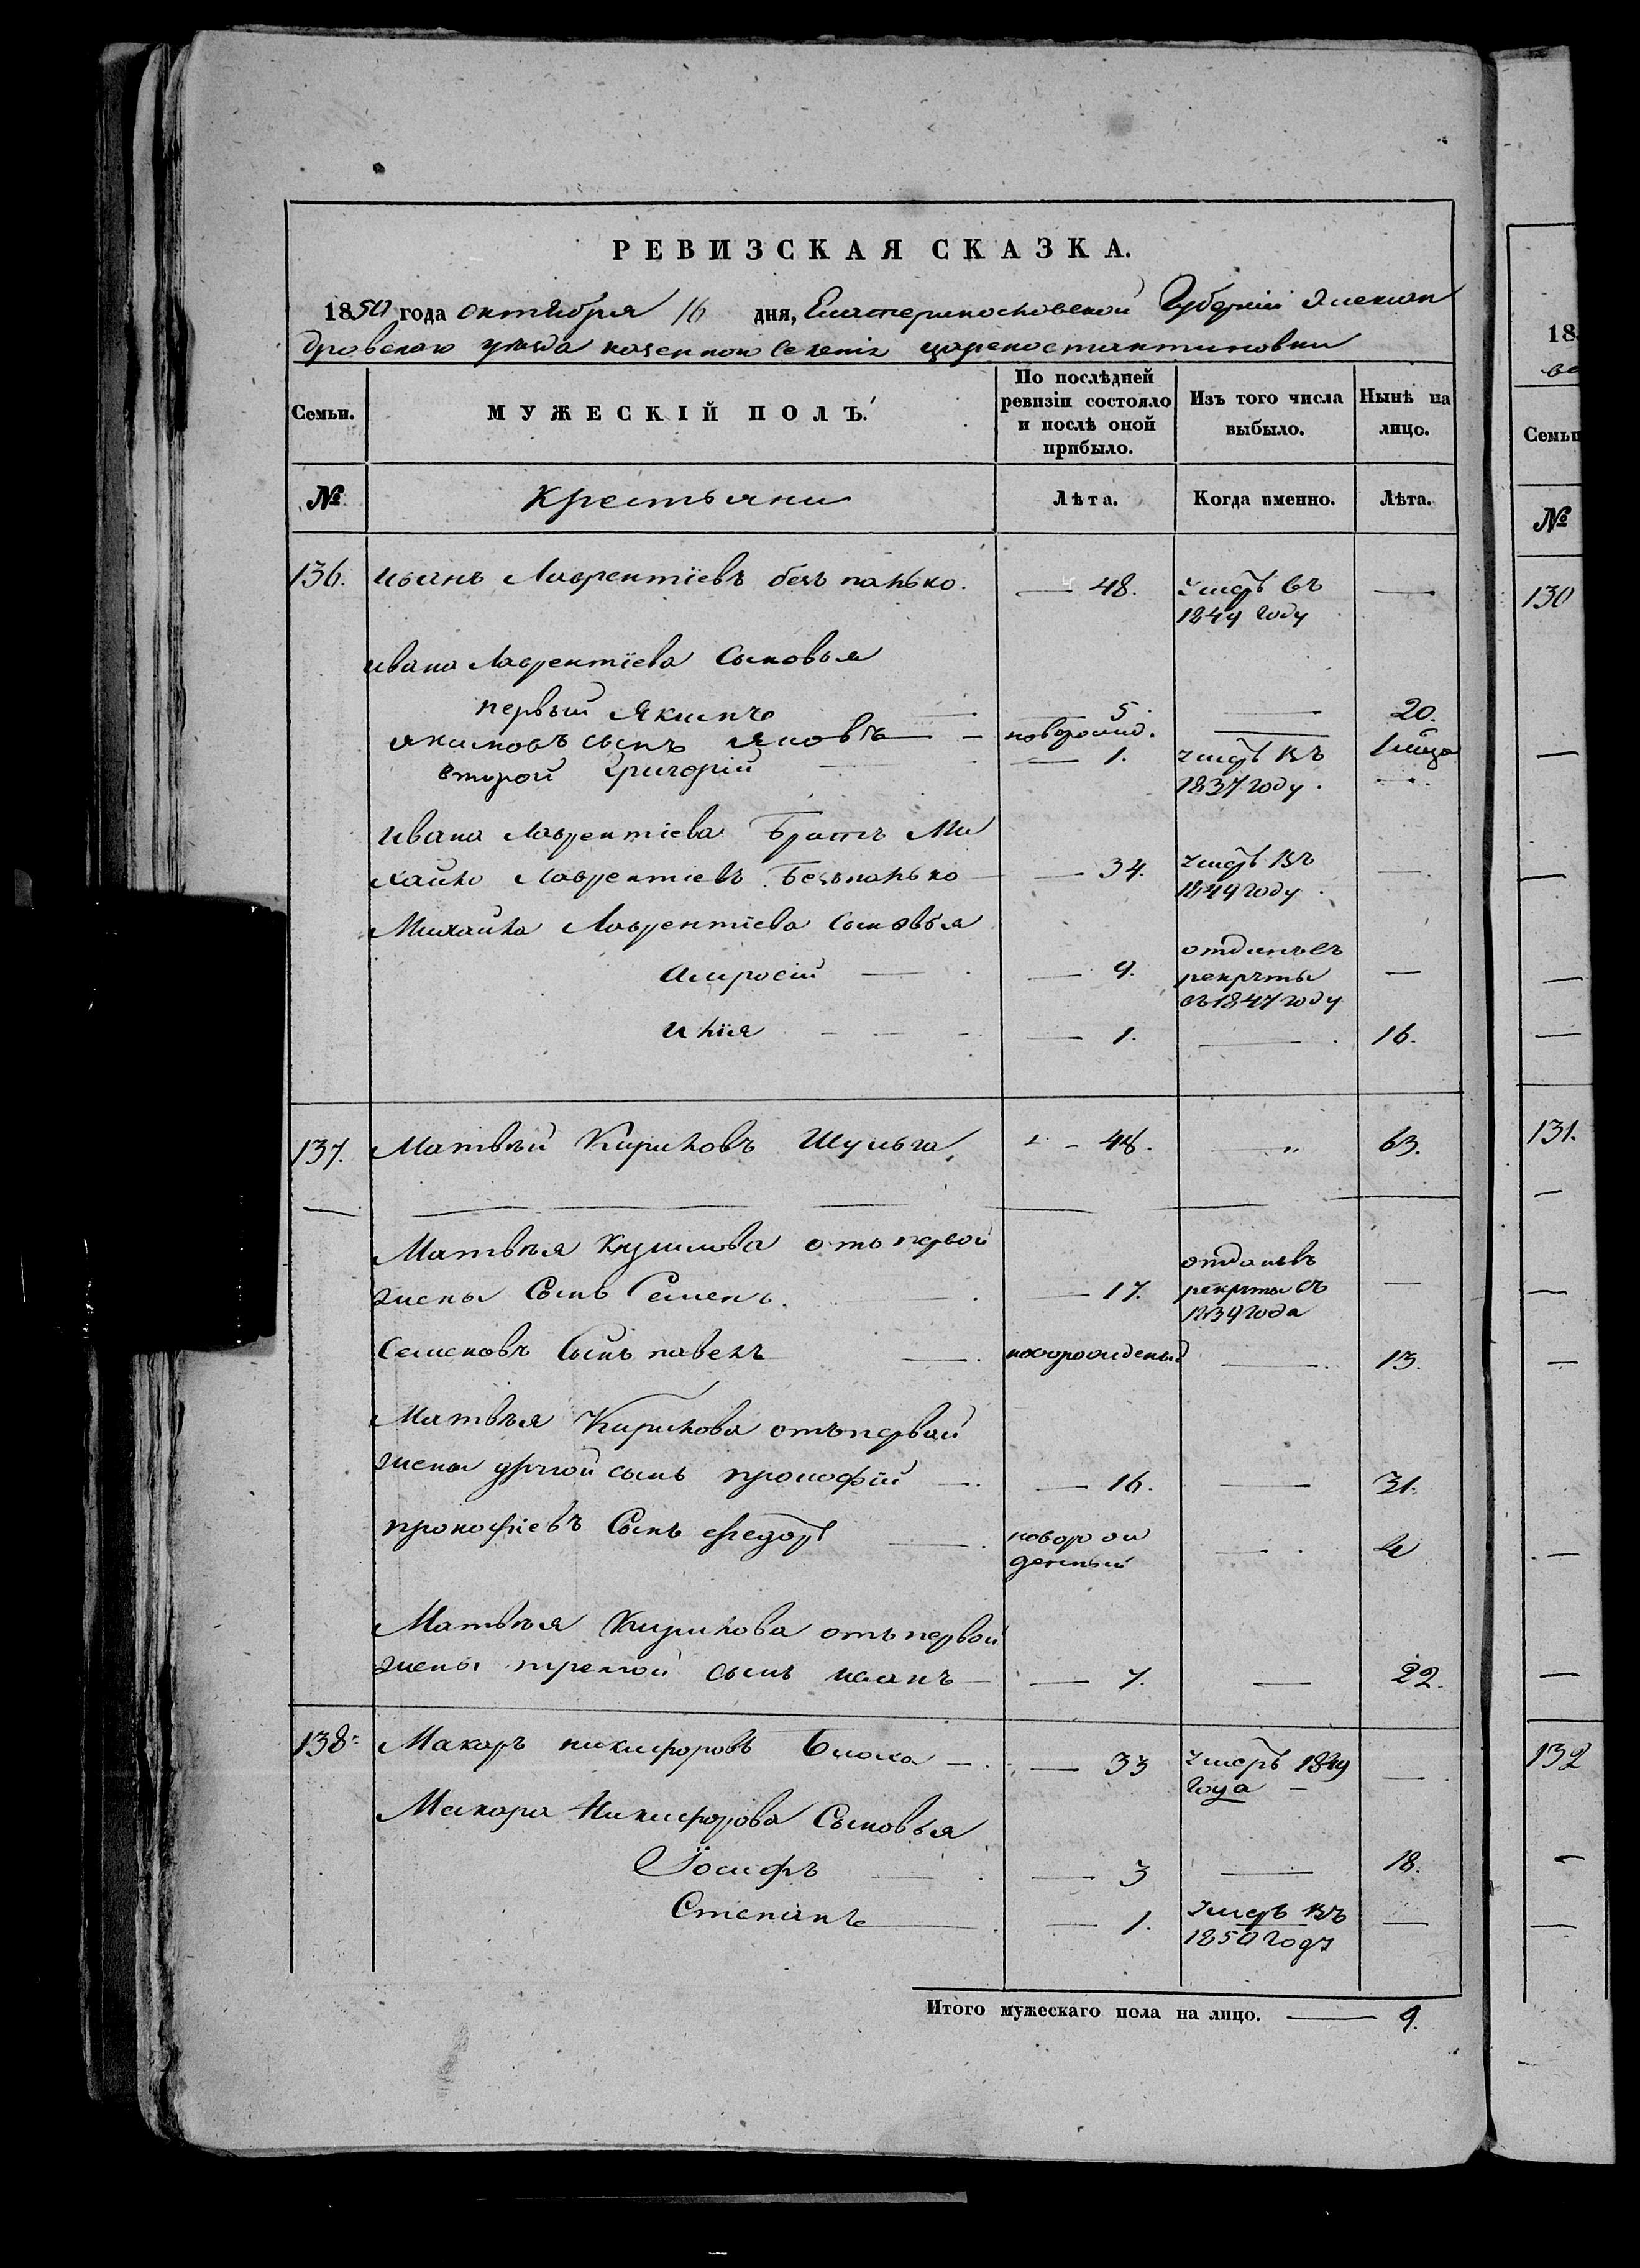 РЕВИЗСКАЯ СКАЗКА.
1850 года октября 16 дня, Екатеринославской Губерніи Алексан
дровскаго уезда казенной Селенія Цареконстантиновки
Семьи. МУЖЕСКІЙ ПОЛЪ. По послѣдней ревизіи состояло и послѣ оной прибыло. Изъ того числа выбыло. Нынѣ на лицо.
№ Крестьяни Лѣта. Когда именно. Лѣта.
136. Иванъ Лаврентіевъ безпалько. — 48. Умеръ въ —
1849 году
Ивана Лаврентіева Сыновья
первый Якимъ — 5. — 20.
Якимовъ сынъ Яковъ — новорожд. — 1 мѣца
второй Григорій — 1. Умеръ въ —
1837 году.
Ивана Лаврентіева Братъ Ми
хайло Лаврентіевъ Безпалько — 34. Умеръ въ —
1849 году.
Михайла Лаврентіева Сыновья
Амросій — 9. отданъ въ —
рекруты
въ 1847 году
Илія — 1. — 16.
137. Матвѣй Кириловъ Шульга, — 48. — 63.
Матвѣя Кирилова отъ первой
жены Сынъ Семенъ. — 17. отданъ въ —
рекруты съ
1839 года
Семеновъ Сынъ павелъ — новорожденый — 13.
Матвѣя Кирилова отъ первой
жены другой сынъ прокофій — 16. — 31.
прокофіевъ Сынъ федоръ — новорож — 4
денный
Матвѣя Кирилова отъ первой
жены третій сынъ иванъ — 7. — 22.
138. Макаръ никифоровъ — 33 Умеръ 1849 —
года
Макара Никифорова Сыновья
Іосифъ — 3 — 18.
Степанъ — 1. Умеръ въ —
1850 году
Итого мужескаго пола на лицо. — 9.
18
Семьи
№
130
131.
132